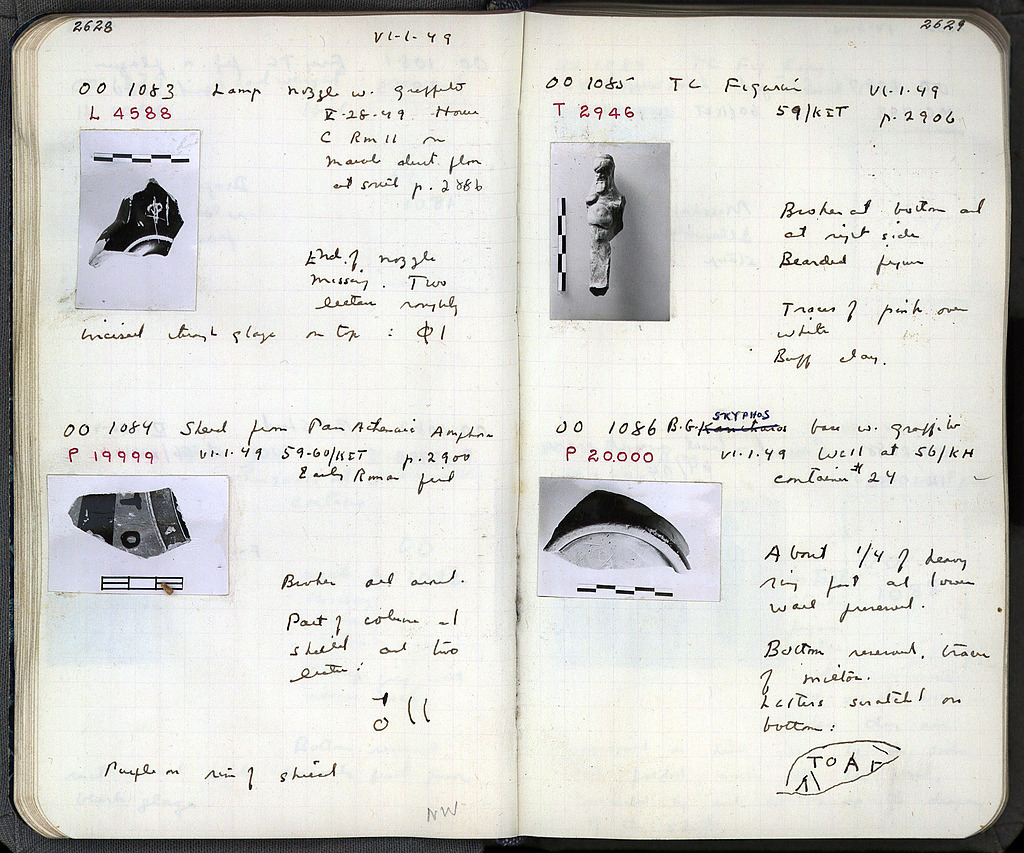 2628
VI-1-49
OO 1083 Lamp nozzle w. graffito
L 4588
V-28-49 House
C Rm 11 on
marble
at south p. 2886
End of nozzle
missing. Two
letters roughly
incised through glaze on top : Φ I
OO 1084 Sherd from Pan Athenaic Amphora
P 19999 VI-1-49 59-60/ΚΣΤ p. 2900
Early Roman fill
Broken all around.
Part of column and
shield and two
letters:
Τ
Ο
Purple on rim of shield
NW
2629
OO 1085 TC Figurine VI-1-49
T 2946 59/ΚΣΤ p. 2906
Broken at bottom and
at right side
Bearded figure
Traces of pink over
white
Buff clay.
SKYPHOS
OO 1086 B.G. Kantharos base w. graffito
P 20,000 VI-1-49 Well at 56/ΚΗ
container #24
About 1/4 of heavy
ring foot and lower
wall preserved.
Bottom reserved, traces
of miltos.
Letters scratched on
bottom:
ΤΟΑΓ